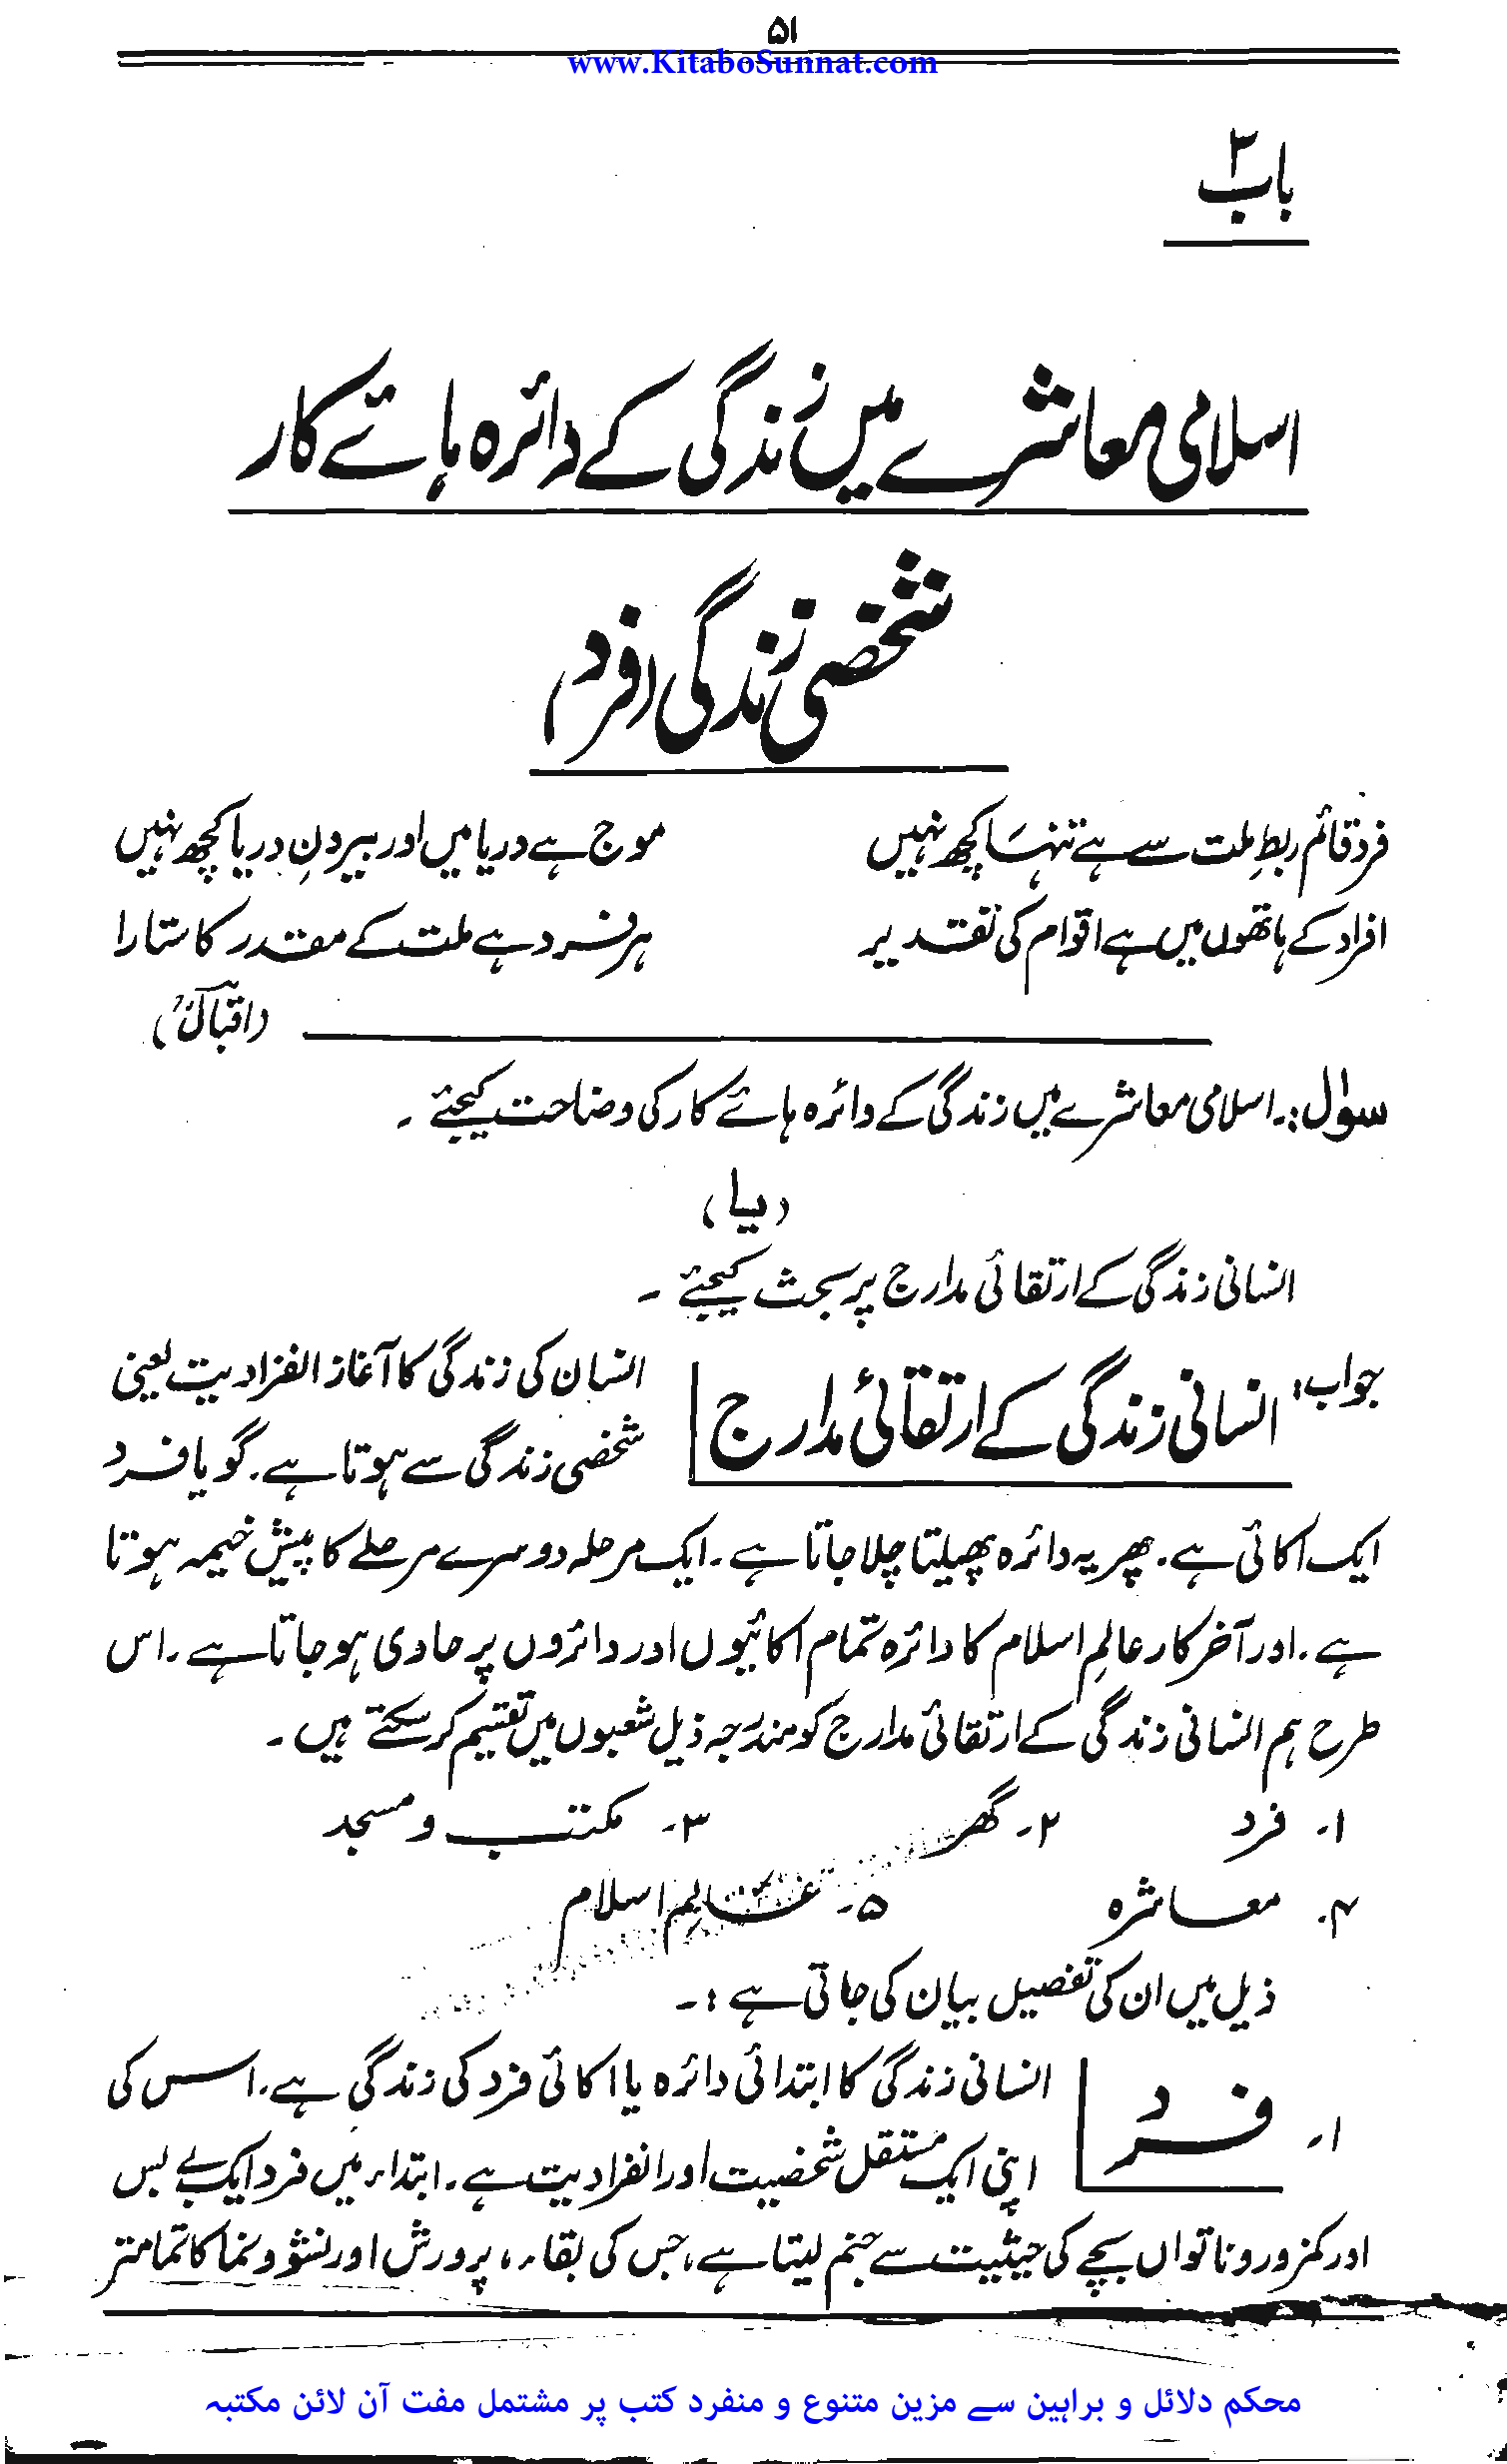 ۵۱
www.KitaboSunnat.com
باب ۲
اسلامی معاشرے میں زندگی کے دائرہ ہائے کار
شخصی زندگی (فرد)
فرد قائم ربطِ ملت سے ہے تنہا کچھ نہیں موج ہے دریا میں اور بیرونِ دریا کچھ نہیں
افراد کے ہاتھوں میں ہے اقوام کی تقدیر ہر فرد ہے ملت کے مقدر کا ستارا
(اقبالؒ)
سوال:۔ اسلامی معاشرے میں زندگی کے دائرہ ہائے کار کی وضاحت کیجئے ۔
(یا)
انسانی زندگی کے ارتقائی مدارج پر بحث کیجئے ۔
جواب: انسانی زندگی کے ارتقائی مدارج انسان کی زندگی کا آغاز انفرادیت یعنی
شخصی زندگی سے ہوتا ہے۔ گویا فرد
ایک اکائی ہے۔ پھر یہ دائرہ پھیلتا چلا جاتا ہے۔ ایک مرحلہ دوسرے مرحلے کا پیش خیمہ ہوتا
ہے۔ اور آخر کار عالمِ اسلام کا دائرہ تمام اکائیوں اور دائروں پر حاوی ہو جاتا ہے۔ اس
طرح ہم انسانی زندگی کے ارتقائی مدارج کو مندرجہ ذیل شعبوں میں تقسیم کر سکتے ہیں ۔
۱۔ فرد ۲۔ گھر ۳۔ مکتب و مسجد
۴۔ معاشرہ ۵۔ عالمِ اسلام
ذیل میں ان کی تفصیل بیان کی جاتی ہے :۔
۱۔ فرد انسانی زندگی کا ابتدائی دائرہ یا اکائی فرد کی زندگی ہے۔ اس کی
اپنی ایک مستقل شخصیت اور انفرادیت ہے۔ ابتداء میں فرد ایک بے بس
اور کمزور و ناتواں بچے کی حیثیت سے جنم لیتا ہے، جس کی بقاء، پرورش اور نشوونما کا تمام تر
محکم دلائل و براہین سے مزین متنوع و منفرد کتب پر مشتمل مفت آن لائن مکتبہ